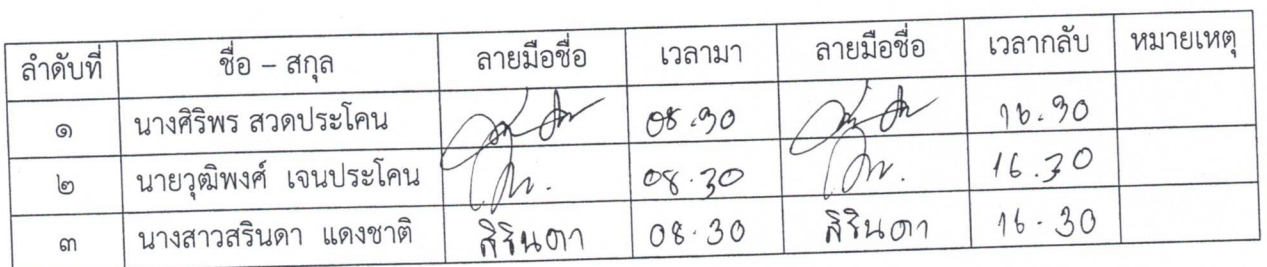 ลำดับที่ ชื่อ – สกุล ลายมือชื่อ เวลามา ลายมือชื่อ เวลากลับ หมายเหตุ
๑ นางศิริพร สวดประโคน 08.30 16.30
๒ นายวุฒิพงศ์ เจนประโคน 08.30 16.30
๓ นางสาวสรินดา แดงชาติ สิรินดา 08.30 สิรินดา 16.30